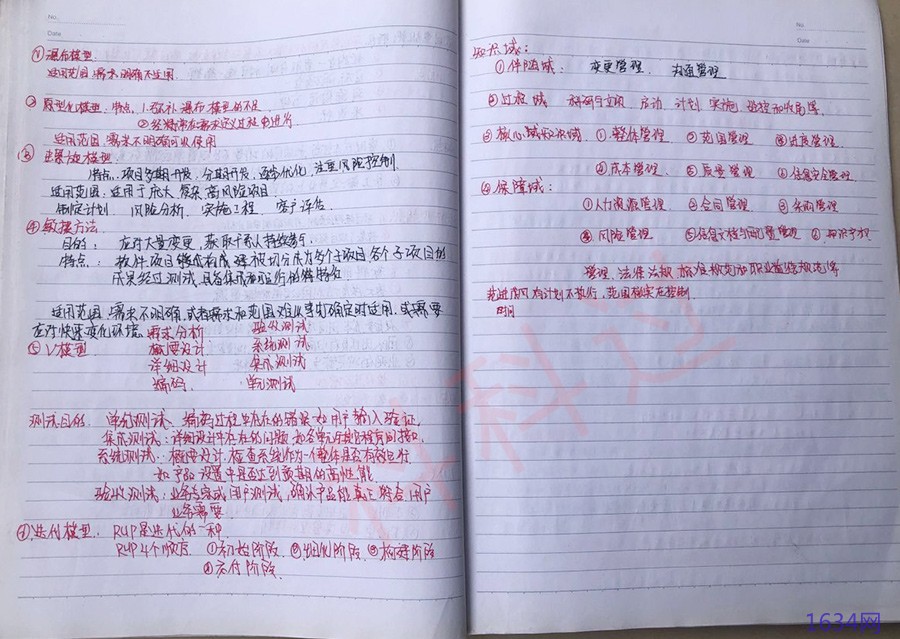 No.
Date
① 瀑布模型
适用范围：需求明确不适用
② 原型化模型：特点：1.弥补瀑布模型的不足
适用范围：需求不明确可以使用
③ 螺旋模型
特点：项目分期开发，分期开发，逐步优化，注重风险控制
适用范围：适用于庞大，复杂，高风险项目
制定计划 风险分析 实施工程 客户评估
④ 敏捷方法
目的：应对大量变更，获取
特点：软件项目 被切分成多个子项目 各个子项目的
成果经过测试，具备集成和可运行的特征
适用范围：需求不明确，或者需求和范围难以事先确定时适用，或需要
应对快速变化环境
需求分析 验收测试
⑤ V模型 概要设计 系统测试
详细设计 集成测试
编码 单元测试
测试目的：单元测试：编码过程中存在的错误 如用户输入验证
集成测试：详细设计中存在的问题
系统测试：概要设计，检查系统作为一个整体是否有效运行
和产品设置中是否达到预期的高性能
验收测试：业务专家或用户测试，确认产品能真正符合用户
业务需要
迭代模型：RUP是迭代的一种
RUP4个顺序 ①初始阶段 ②细化阶段 ③构建阶段
④交付阶段
No.
Date
知识域：
① 伴随域：变更管理、沟通管理
② 过程域 启动 计划 实施 监控和收尾
③ 核心域 ① 整体管理 ② 范围管理 ③ 进度管理
④ 成本管理 ⑤ 质量管理 ⑥ 信息安全管理
④ 保障域：
① 人力资源管理 ② 合同管理 ③ 采购管理
④ 风险管理 ⑤ 信息文档与配置管理 ⑥ 知识产权
管理，法律法规 标准规范和职业道德规范等
范围核实在控制
时间
1634网